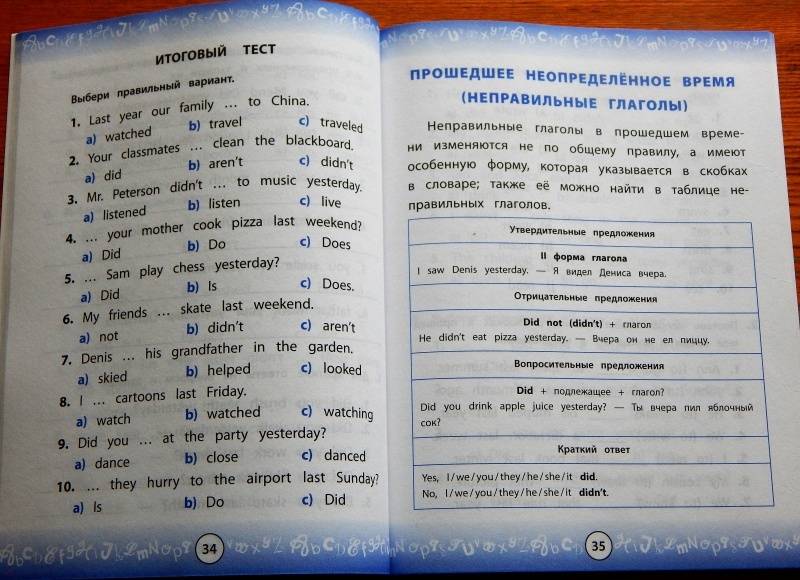 ИТОГОВЫЙ ТЕСТ
Выбери правильный вариант.
1. Last year our family … to China.
a) watched b) travel c) traveled
2. Your classmates … clean the blackboard.
a) did b) aren't c) didn't
3. Mr. Peterson didn't … to music yesterday.
a) listened b) listen c) live
4. … your mother cook pizza last weekend?
a) Did b) Do c) Does
5. … Sam play chess yesterday?
a) Did b) Is c) Does.
6. My friends … skate last weekend.
a) not b) didn't c) aren't
7. Denis … his grandfather in the garden.
a) skied b) helped c) looked
8. I … cartoons last Friday.
a) watch b) watched c) watching
9. Did you … at the party yesterday?
a) dance b) close c) danced
10. … they hurry to the airport last Sunday?
a) Is b) Do c) Did
34
ПРОШЕДШЕЕ НЕОПРЕДЕЛЁННОЕ ВРЕМЯ
(НЕПРАВИЛЬНЫЕ ГЛАГОЛЫ)
Неправильные глаголы в прошедшем време-
ни изменяются не по общему правилу, а имеют
особенную форму, которая указывается в скобках
в словаре; также её можно найти в таблице не-
правильных глаголов.
Утвердительные предложения
II форма глагола
I saw Denis yesterday. — Я видел Дениса вчера.
Отрицательные предложения
Did not (didn't) + глагол
He didn't eat pizza yesterday. — Вчера он не ел пиццу.
Вопросительные предложения
Did + подлежащее + глагол?
Did you drink apple juice yesterday? — Ты вчера пил яблочный
сок?
Краткий ответ
Yes, I/we/you/they/he/she/it did.
No, I/we/you/they/he/she/it didn't.
35